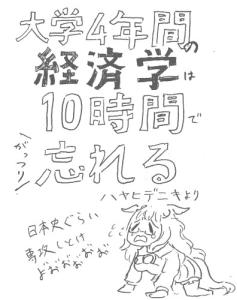 大学4年間の
経済学は
10時間で
\がっつり/
忘れる
ハヤヒデニキより
日本史ぐらい
専攻しとけ
よおおおおお